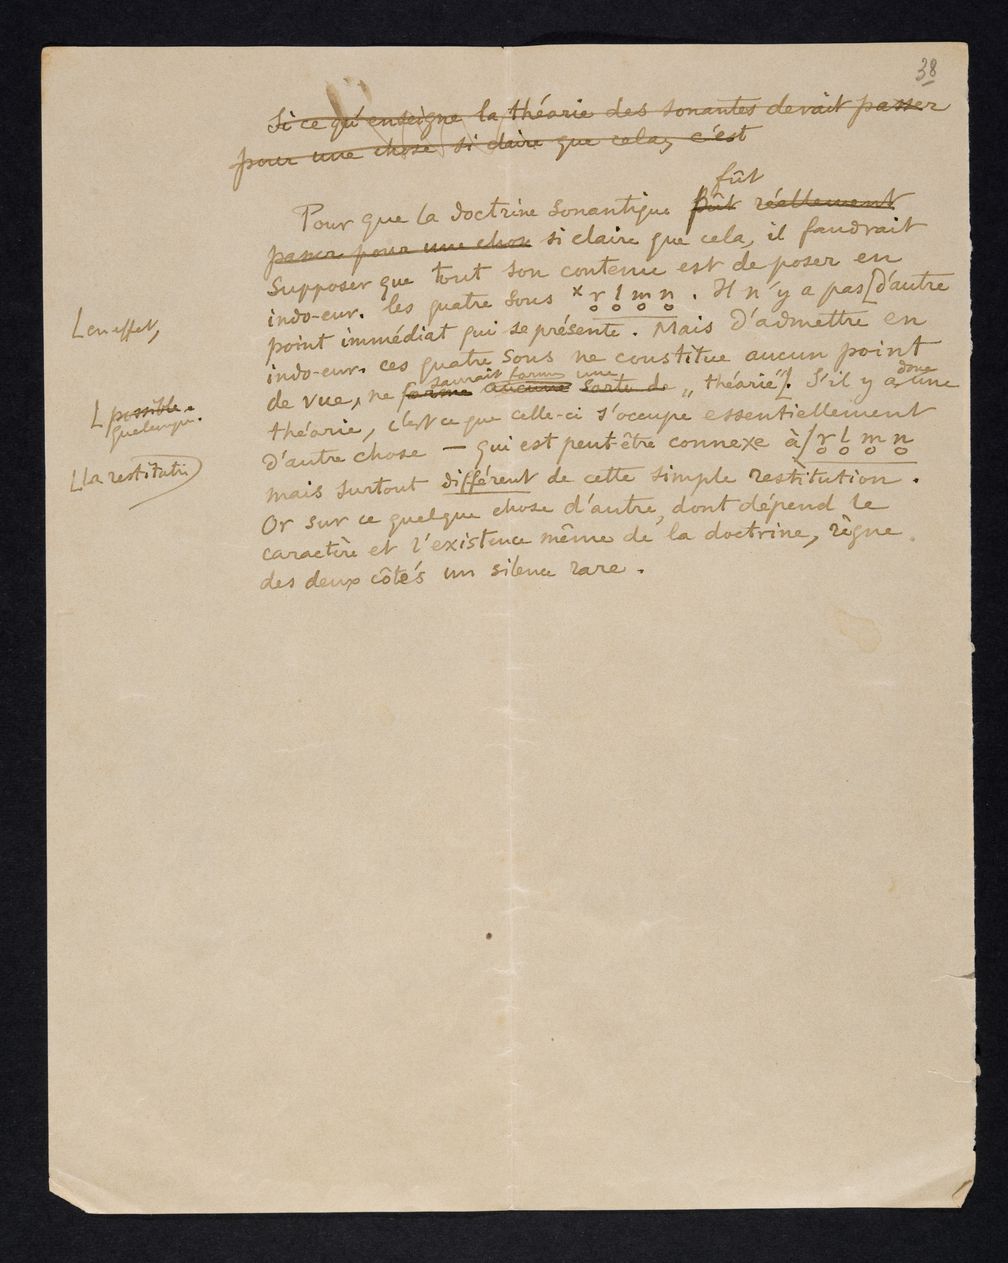 38
Si ce qu'enseigne la théorie des sonantes devait passer
pour une chose si claire que cela, c'est
fût
Pour que la doctrine sonantique pût réellement
passer pour une chose si claire que cela, il faudrait
supposer que tout son contenu est de poser en
indo-eur. les quatre sons × r̥ l̥ m̥ n̥. Il n'y a pas [d'autre
⌊en effet,
point immédiat qui se présente. Mais d'admettre en
indo-eur. ces quatre sons ne constitue aucun point
saurait former une
donc
de vue, ne forme aucune sorte de „théorie"⌊. S'il y a une
⌊possible.
quelconque.
théorie, c'est ce que celle-ci s'occupe essentiellement
d'autre chose — qui est peut-être connexe à ⌊r̥ l̥ m̥ n̥
⌊la restitutn
mais surtout différent de cette simple restitution.
Or sur ce quelque chose d'autre, dont dépend le
caractère et l'existence même de la doctrine, règne
des deux côtés un silence rare.